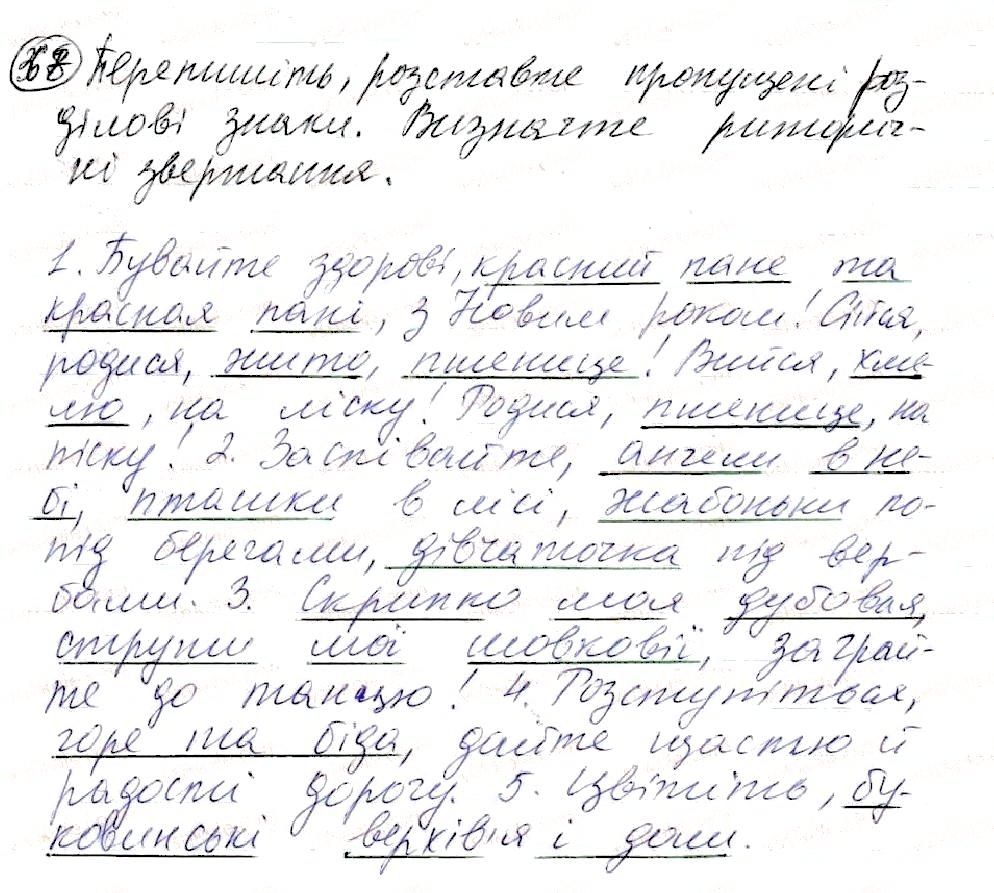 368 Перепишіть, розставте пропущені роз-
ділові знаки. Визначте риторич-
ні звертання.
1. Бувайте здорові, красний пане та
красная пані, з Новим роком! Сійся,
родися, жито, пшенице! Вийся, хме-
лю, на ліску! Родися, пшенице, на
піску! 2. Заспівайте, ангели в не-
бі, пташки в лісі, жабоньки по-
під берегами, дівчаточка під вер-
бами. 3. Скрипко моя дубовая,
струни мої шовковії, заграй-
те до танцю! 4. Розступіться,
горе та біда, дайте щастю й
радості дорогу. 5. Цвітіть, бу-
ковинські верхів'я і доли.